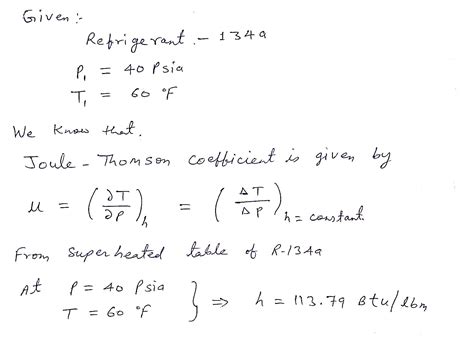 Given :-
Refrigerant :- 134a
P₁ = 40 Psia
T₁ = 60 °F
We Know that.
Joule - Thomson coefficient is given by
μ = (∂T/∂P)h = (ΔT/ΔP)h = constant
From Superheated table of R-134a
At P = 40 Psia
T = 60 °F } ⇒ h = 113.79 Btu/lbm